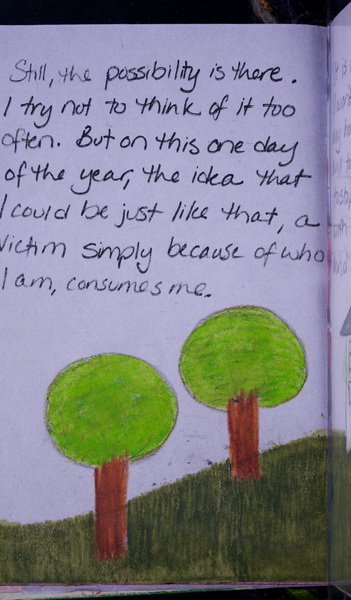 Still, the possibility is there.
I try not to think of it too
often. But on this one day
of the year, the idea that
I could be just like that, a
victim simply because of who
I am, consumes me.